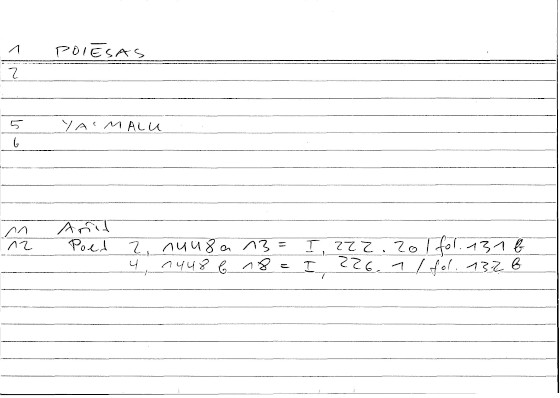 1 POIĒSAS
2
5 YAʿMALU
6
11 Arist
12 Poet 2, 1448a 13 = I, 222.20 / fol. 131 b
4, 1448b 18 = I, 226.1 / fol. 132 b